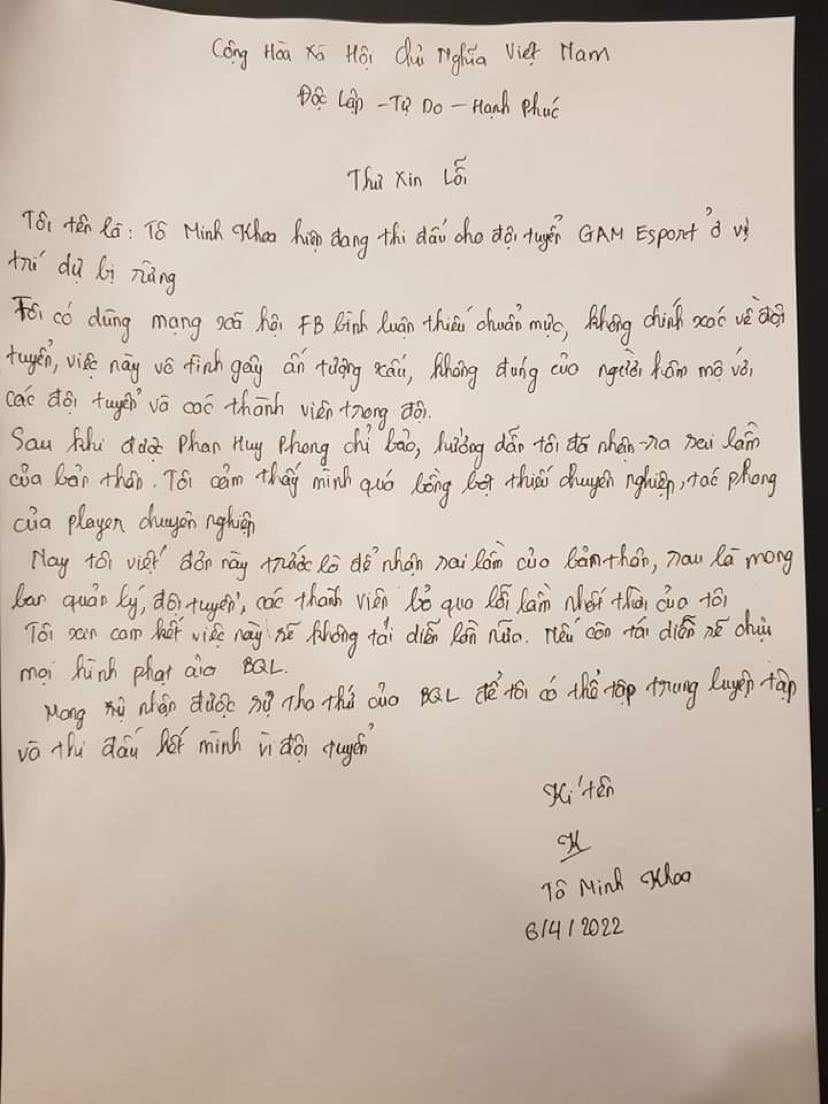 Cộng Hòa Xã Hội Chủ Nghĩa Việt Nam
Độc Lập - Tự Do - Hạnh Phúc
Thư Xin Lỗi
Tôi tên là: Tô Minh Khoa hiện đang thi đấu cho đội tuyển GAM Esport ở vị
trí dự bị rừng
Tôi có dùng mạng xã hội FB bình luận thiếu chuẩn mực, không chính xác về đội
tuyển, việc này vô tình gây ấn tượng xấu, không đúng của người hâm mộ với
các đội tuyển và các thành viên trong đội.
Sau khi được Phan Huy Phong chỉ bảo, hướng dẫn tôi đã nhận ra sai lầm
của bản thân. Tôi cảm thấy mình quá bồng bột thiếu chuyên nghiệp, tác phong
của player chuyên nghiệp
Nay tôi viết đơn này trước là để nhận sai lầm của bản thân, sau là mong
ban quản lý, đội tuyển, các thành viên bỏ qua lỗi lầm nhất thời của tôi
Tôi xin cam kết việc này sẽ không tái diễn lần nữa. Nếu còn tái diễn sẽ chịu
mọi hình phạt của BQL.
Mong sự nhận được sự tha thứ của BQL để tôi có thể tập trung luyện tập
và thi đấu hết mình vì đội tuyển
Kí tên
K
Tô Minh Khoa
6/4/2022